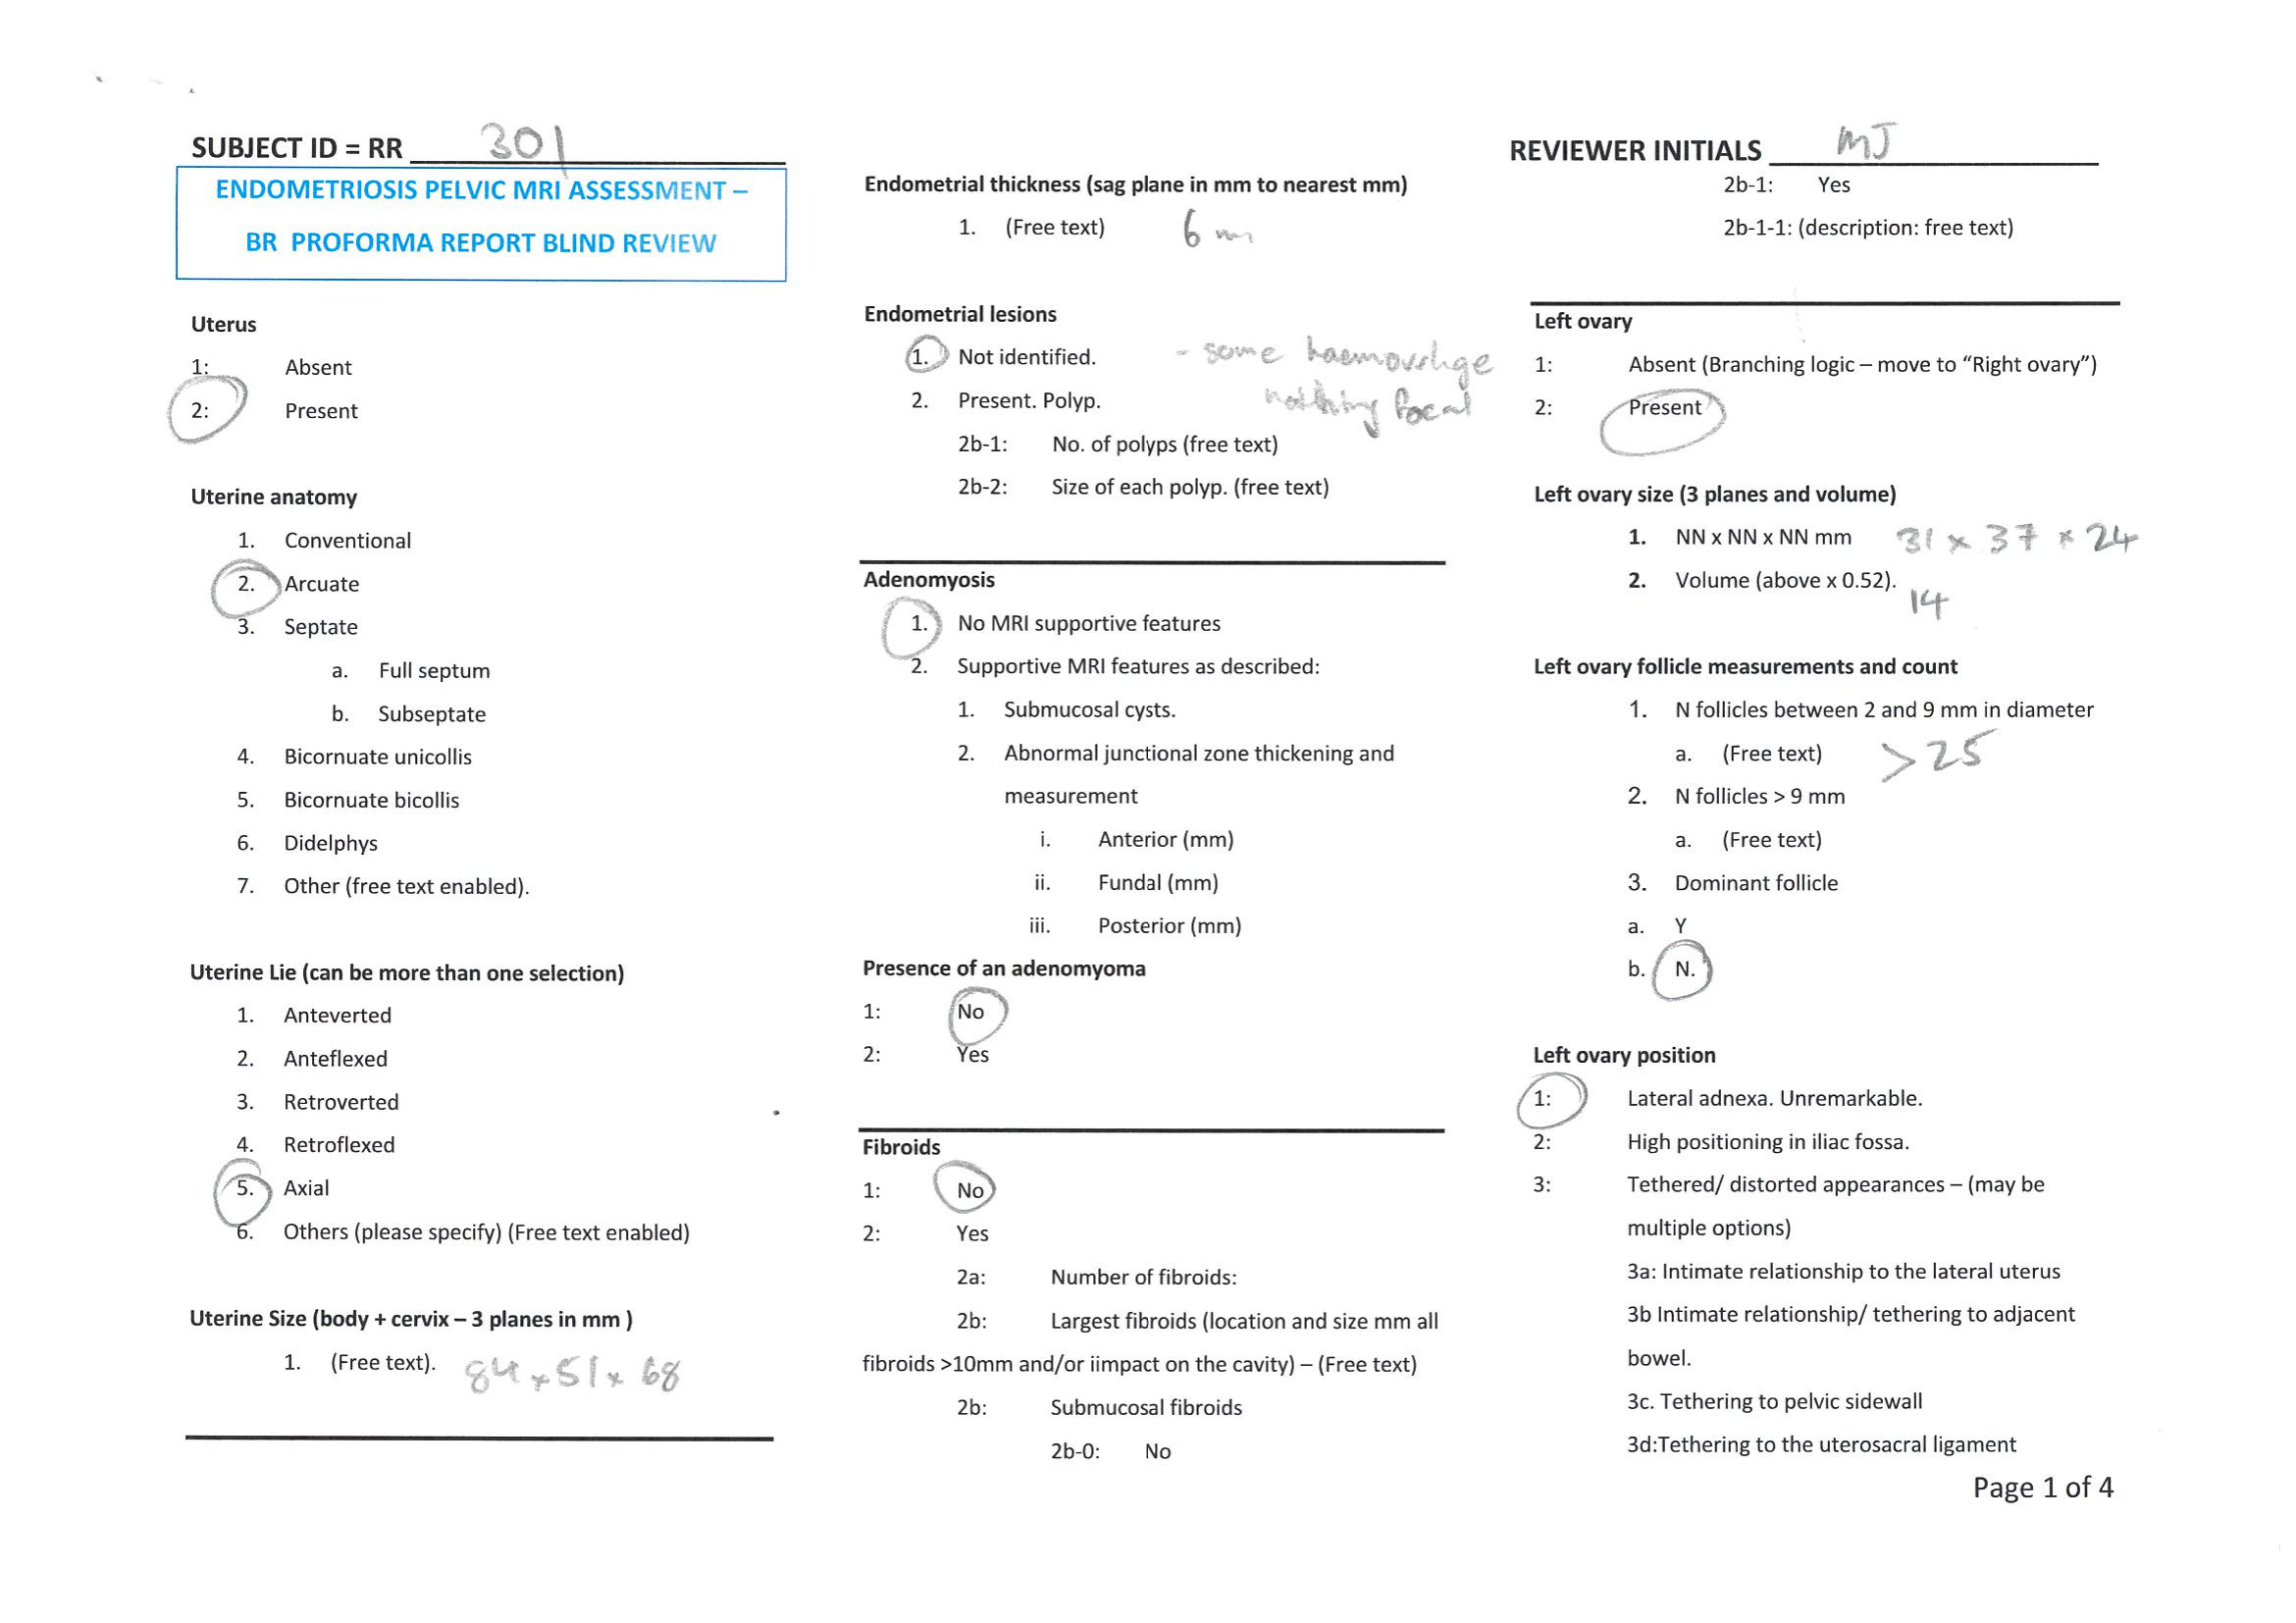 SUBJECT ID = RR 301
ENDOMETRIOSIS PELVIC MRI ASSESSMENT –
BR PROFORMA REPORT BLIND REVIEW
Uterus
1: Absent
2: Present
Uterine anatomy
1. Conventional
2. Arcuate
3. Septate
a. Full septum
b. Subseptate
4. Bicornuate unicollis
5. Bicornuate bicollis
6. Didelphys
7. Other (free text enabled).
Uterine Lie (can be more than one selection)
1. Anteverted
2. Anteflexed
3. Retroverted
4. Retroflexed
5. Axial
6. Others (please specify) (Free text enabled)
Uterine Size (body + cervix – 3 planes in mm )
1. (Free text). 84 x 51 x 68
Endometrial thickness (sag plane in mm to nearest mm)
1. (Free text) 6 mm
Endometrial lesions
1. Not identified. - some haemorrhge
2. Present. Polyp. nothing focal
2b-1: No. of polyps (free text)
2b-2: Size of each polyp. (free text)
Adenomyosis
1. No MRI supportive features
2. Supportive MRI features as described:
1. Submucosal cysts.
2. Abnormal junctional zone thickening and
measurement
i. Anterior (mm)
ii. Fundal (mm)
iii. Posterior (mm)
Presence of an adenomyoma
1: No
2: Yes
Fibroids
1: No
2: Yes
2a: Number of fibroids:
2b: Largest fibroids (location and size mm all
fibroids >10mm and/or iimpact on the cavity) – (Free text)
2b: Submucosal fibroids
2b-0: No
REVIEWER INITIALS MJ
2b-1: Yes
2b-1-1: (description: free text)
Left ovary
1: Absent (Branching logic – move to “Right ovary”)
2: Present
Left ovary size (3 planes and volume)
1. NN x NN x NN mm 31 x 37 x 24
2. Volume (above x 0.52).
14
Left ovary follicle measurements and count
1. N follicles between 2 and 9 mm in diameter
a. (Free text) >25
2. N follicles > 9 mm
a. (Free text)
3. Dominant follicle
a. Y
b. N.
Left ovary position
1: Lateral adnexa. Unremarkable.
2: High positioning in iliac fossa.
3: Tethered/ distorted appearances – (may be
multiple options)
3a: Intimate relationship to the lateral uterus
3b Intimate relationship/ tethering to adjacent
bowel.
3c. Tethering to pelvic sidewall
3d:Tethering to the uterosacral ligament
Page 1 of 4